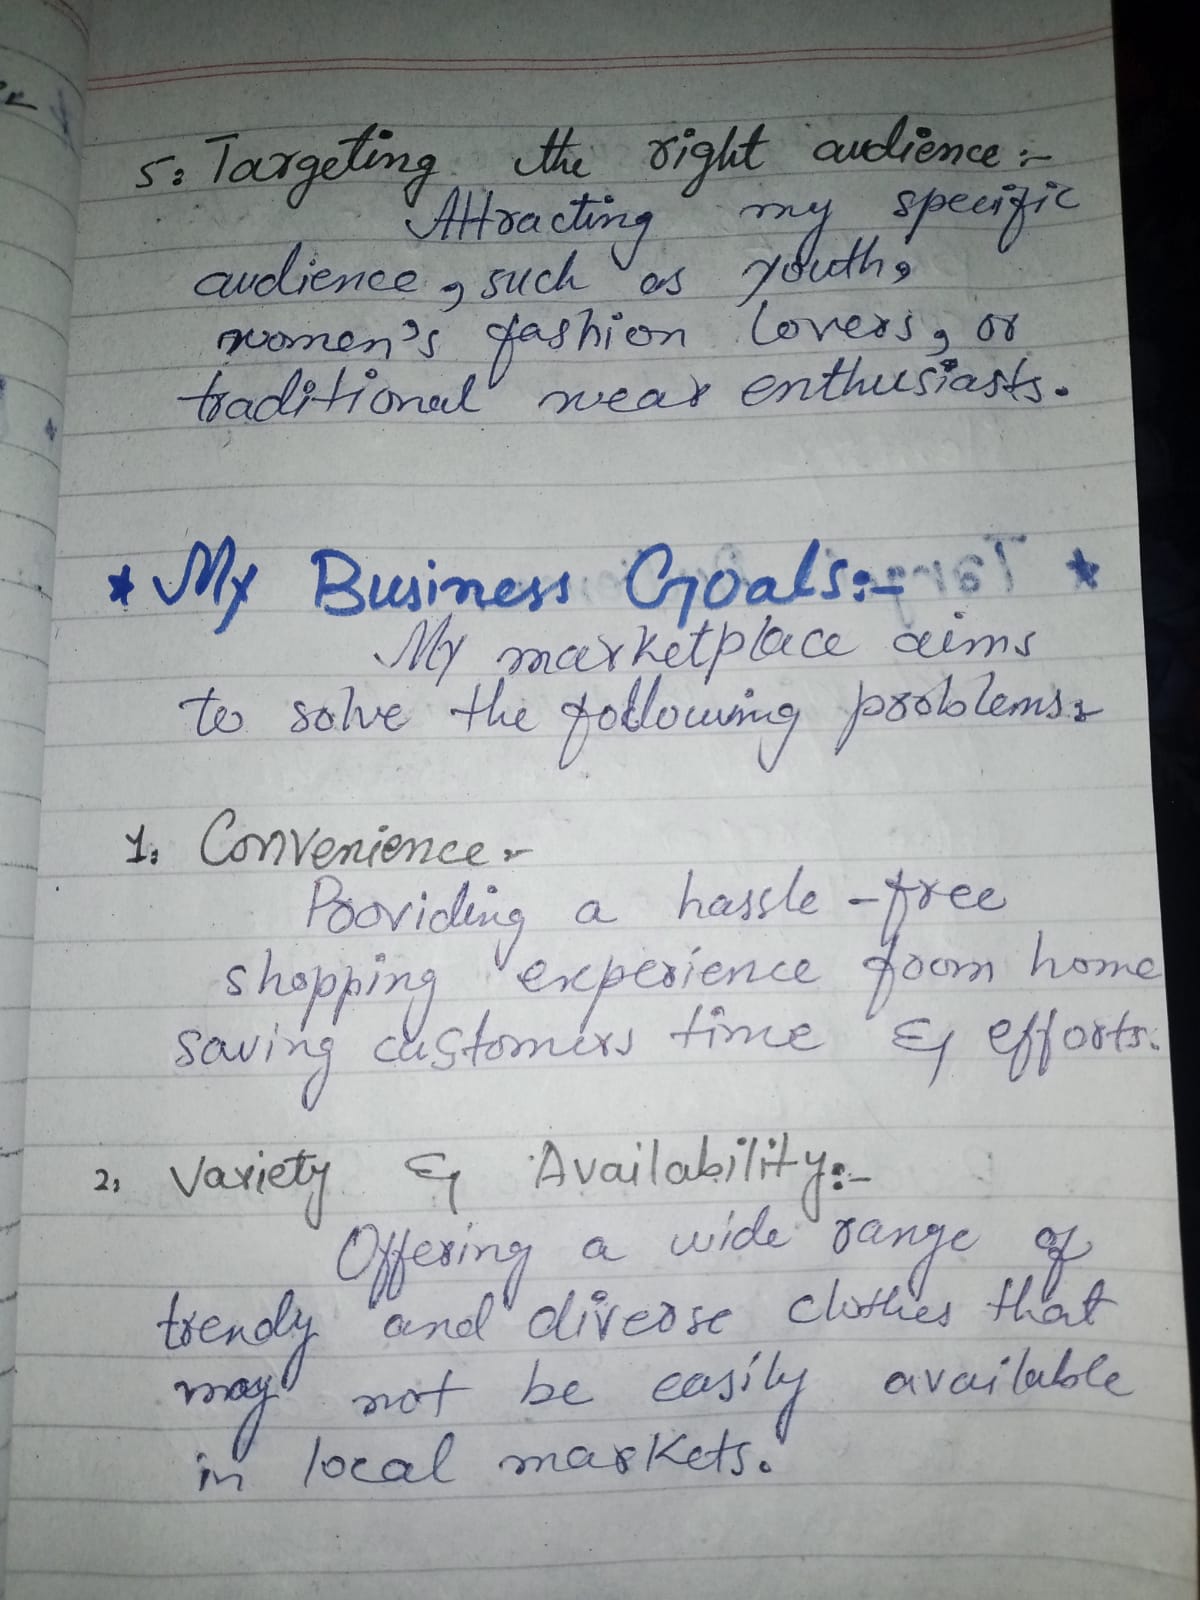 5: Targeting the right audience:-
Attracting my specific
audience, such as youth,
women's fashion lovers, or
traditional wear enthusiasts.
* My Business Goals:-
My marketplace aims
to solve the following problems:-
1: Convenience:-
Providing a hassle-free
shopping experience from home
saving customers time & efforts.
2: Variety & Availability:-
Offering a wide range of
trendy and diverse clothes that
may not be easily available
in local markets.